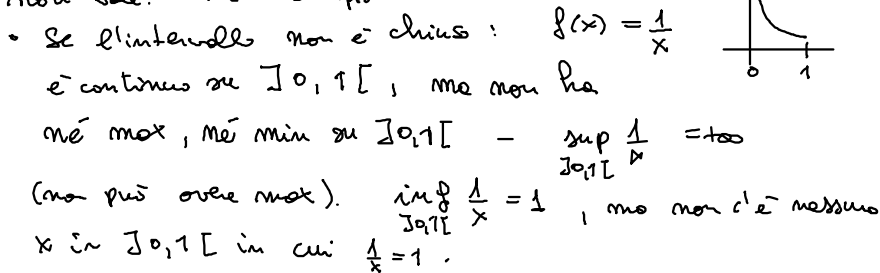 • Se l'intervallo non è chiuso : f(x) = 1/x
è continuo su ]0,1[ , ma non ha
né max, né min su ]0,1[ – sup_{]0,1[} 1/x = +∞
(non può avere max). inf_{]0,1[} 1/x = 1 , ma non c'è nessuno
x in ]0,1[ in cui 1/x = 1 .
0 1